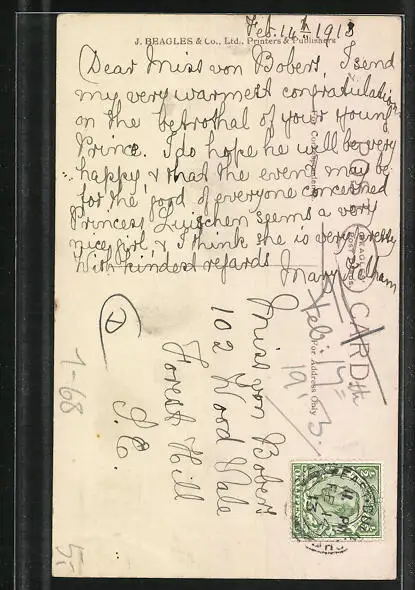 Feb. 14th 1913
J. BEAGLES & Co., Ltd., Printers & Publishers
Dear Miss von Bobers, I send
my very warmest congratulations
on the betrothal of your young
Prince. I do hope he will be very
happy, & that the event may be
for the good of everyone concerned
Princess Lizischen seems a very
nice girl, & I think she is very pretty
With kindest regards Mary
POST CARD
For Address Only
Feb: 17th
1913.
Miss von Bobers
102 Wood Vale
Forest Hill
S.E.
1-68
5:-